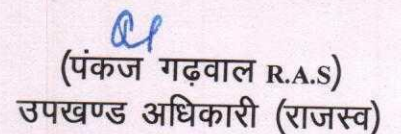 (पंकज गढ़वाल R.A.S)
उपखण्ड अधिकारी (राजस्व)